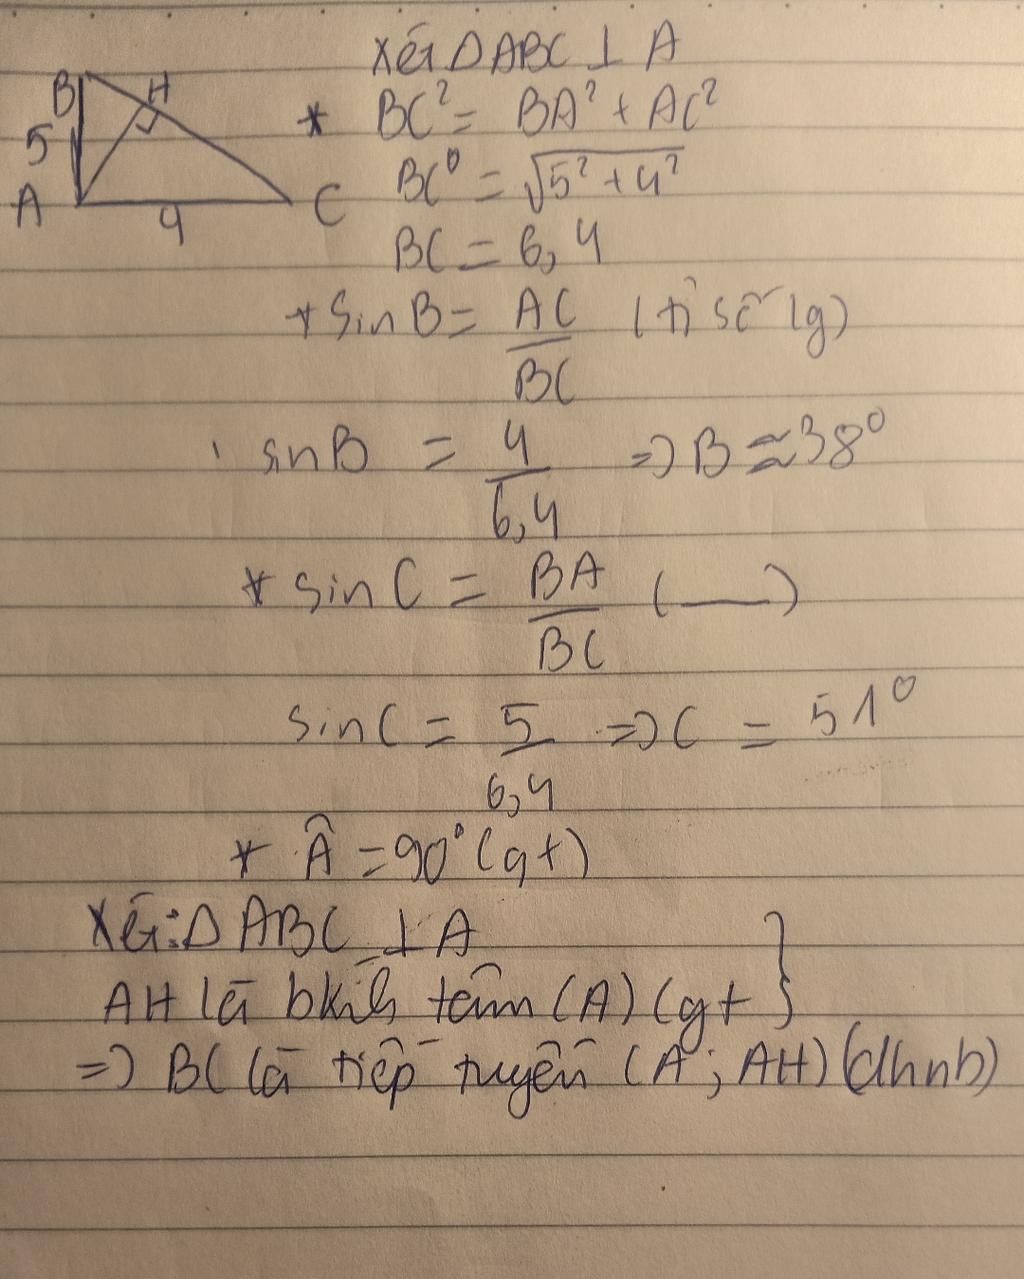 Xét Δ ABC ⊥ A
B H
5
A 4 C
* BC² = BA² + AC²
BC = √5² + 4²
BC = 6,4
* sin B = AC/BC (tỉ số lg)
sin B = 4/6,4 => B ≈ 38°
* sin C = BA/BC ( — )
sin C = 5/6,4 => C = 51°
* Â = 90° (gt)
Xét: Δ ABC ⊥ A
AH là bkính tâm (A) (gt }
=> BC là tiếp tuyến (A; AH) (dhnb)